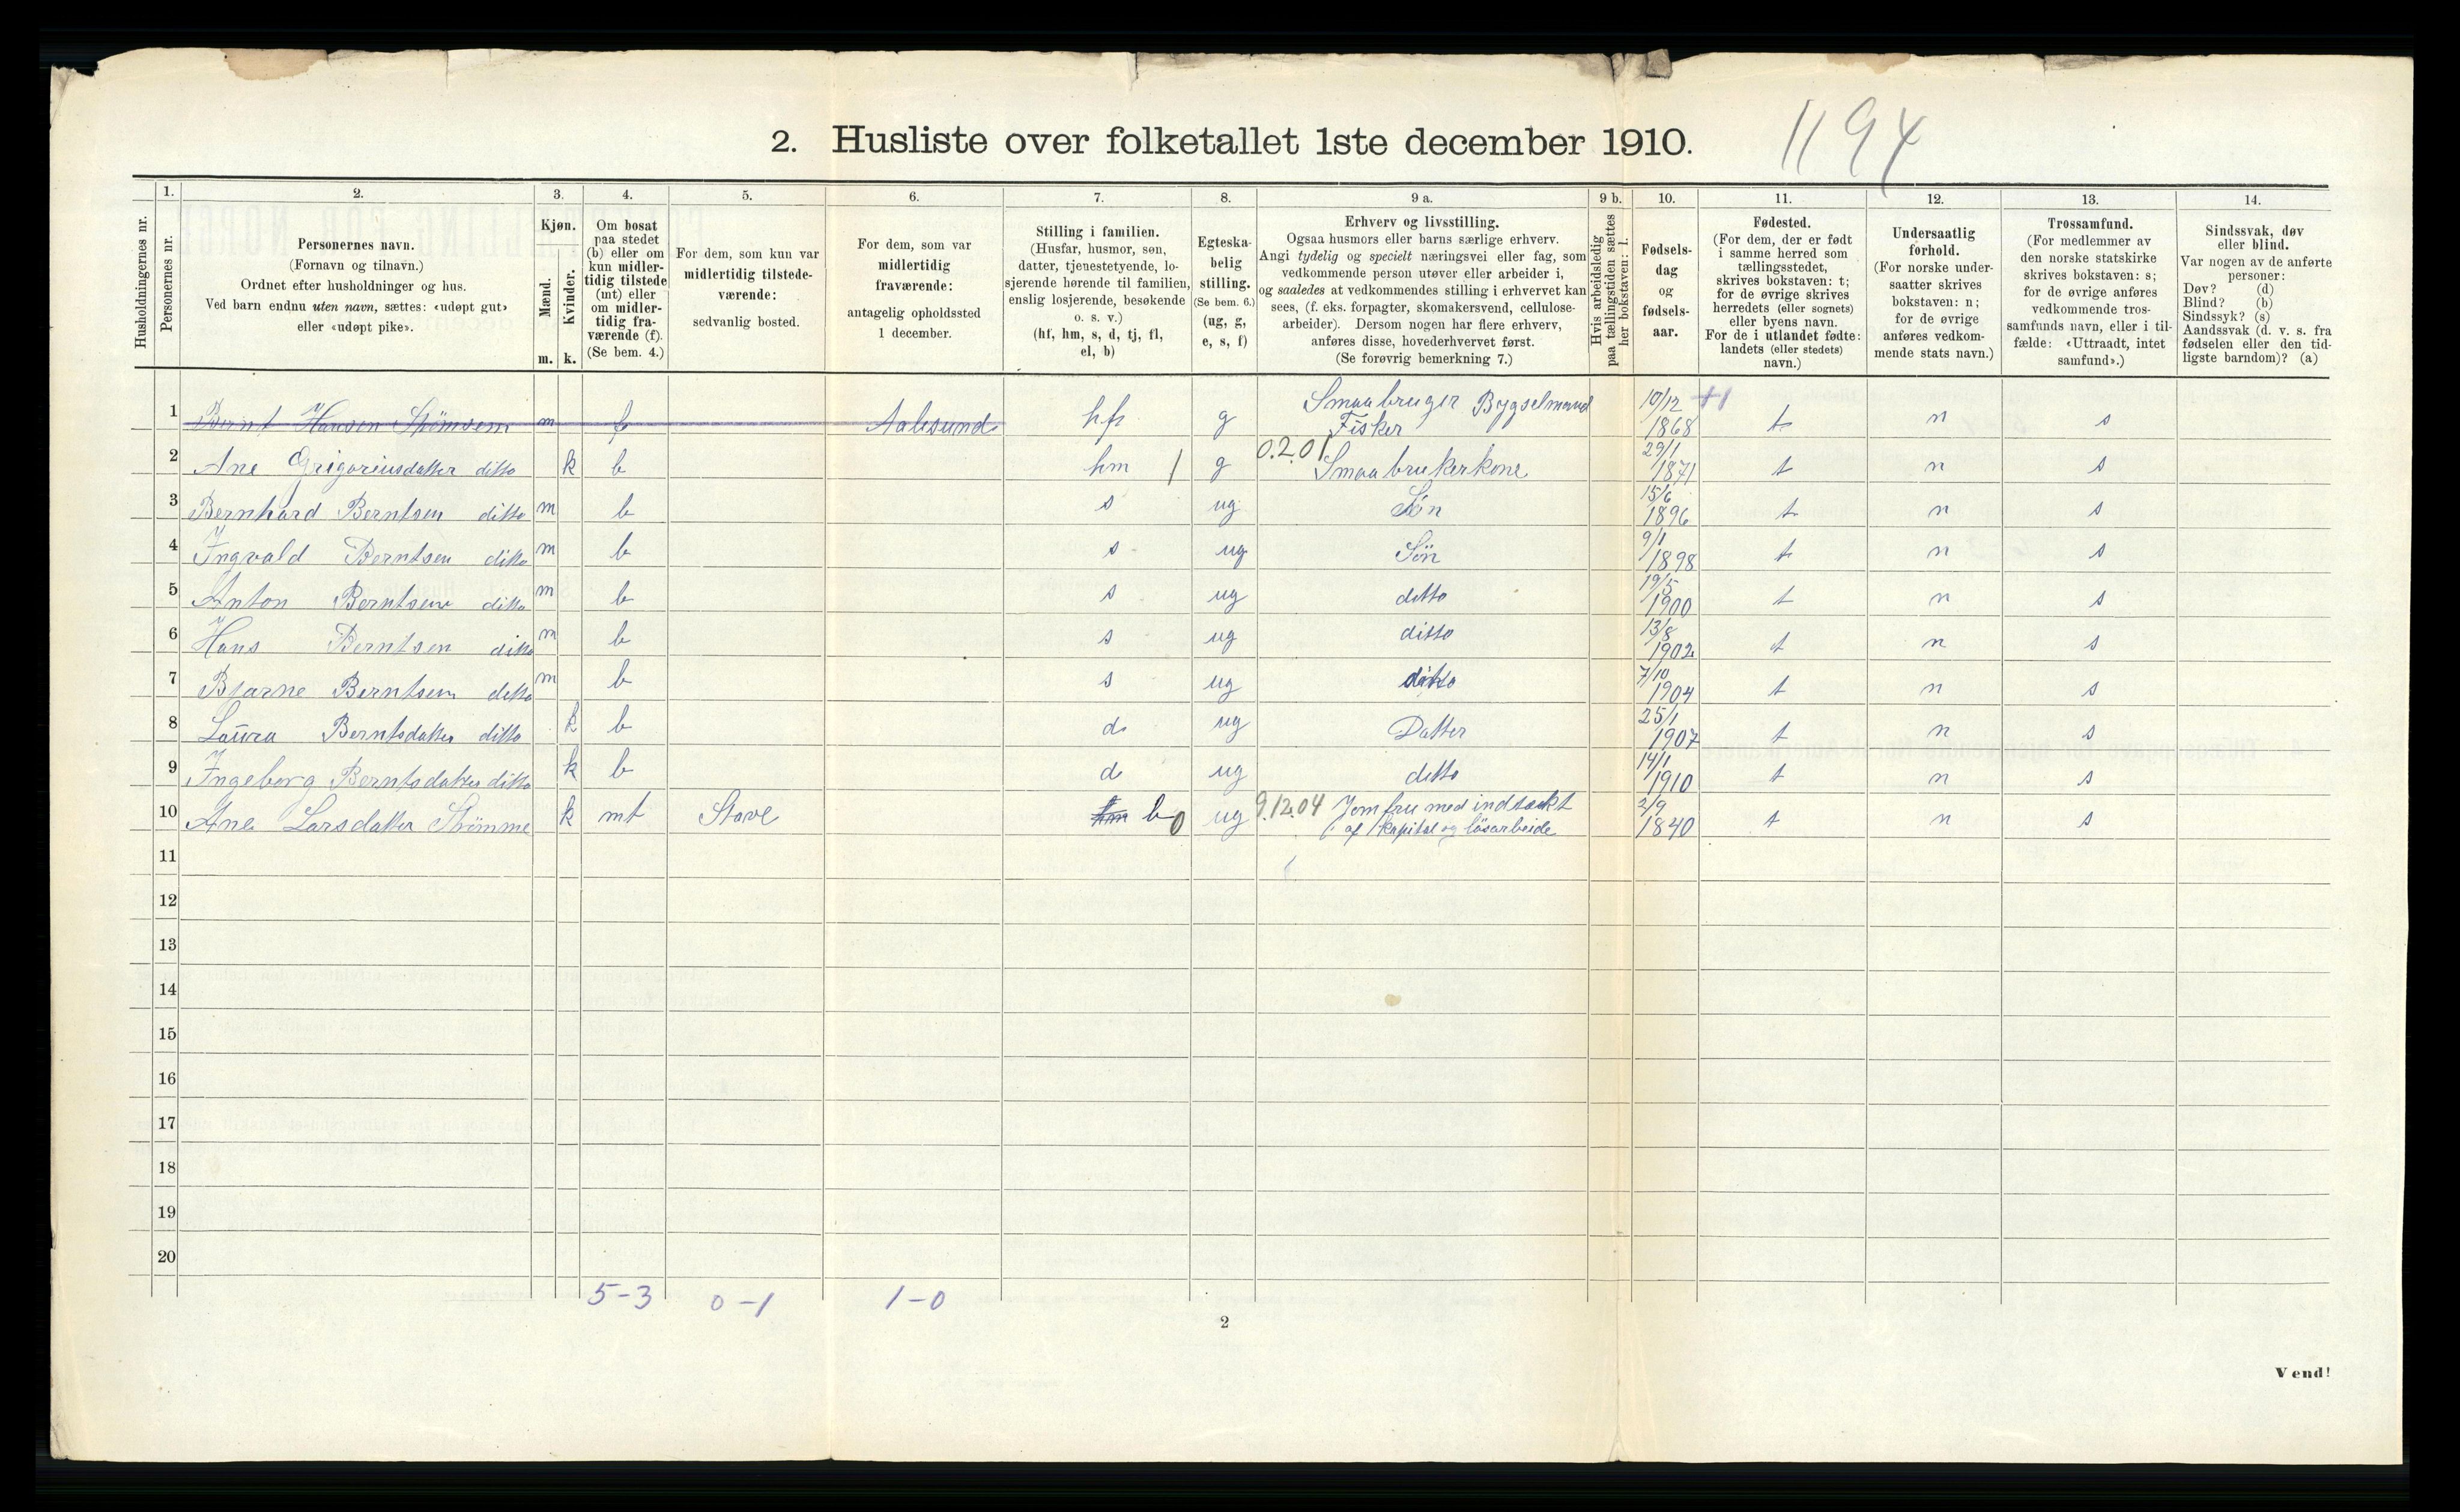 1194
2. Husliste over folketallet 1ste december 1910.
Husholdningernes nr.
1. Personernes nr.
2. Personernes navn. (Fornavn og tilnavn.) Ordnet efter husholdninger og hus. Ved barn endnu uten navn, sættes: «udøpt gut» eller «udøpt pike».
3. Kjøn. Mænd. m. Kvinder. k.
4. Om bosat paa stedet (b) eller om kun midlertidig tilstede (mt) eller om midlertidig fraværende (f). (Se bem. 4.)
5. For dem, som kun var midlertidig tilstedeværende: sedvanlig bosted.
6. For dem, som var midlertidig fraværende: antagelig opholdssted 1 december.
7. Stilling i familien. (Husfar, husmor, søn, datter, tjenestetyende, losjerende hørende til familien, enslig losjerende, besøkende o. s. v.) (hf, hm, s, d, tj, fl, el, b)
8. Egteskabelig stilling. (Se bem. 6.) (ug, g, e, s, f)
9 a. Erhverv og livsstilling. Ogsaa husmors eller barns særlige erhverv. Angi tydelig og specielt næringsvei eller fag, som vedkommende person utøver eller arbeider i, og saaledes at vedkommendes stilling i erhvervet kan sees, (f. eks. forpagter, skomakersvend, cellulosearbeider). Dersom nogen har flere erhverv, anføres disse, hovederhvervet først. (Se forøvrig bemerkning 7.)
9 b. Hvis arbeidsledig paa tællingstiden sættes her bokstaven: l.
10. Fødselsdag og fødselsaar.
11. Fødested. (For dem, der er født i samme herred som tællingsstedet, skrives bokstaven: t; for de øvrige skrives herredets (eller sognets) eller byens navn. For de i utlandet fødte: landets (eller stedets) navn.)
12. Undersaatlig forhold. (For norske undersaatter skrives bokstaven: n; for de øvrige anføres vedkommende stats navn.)
13. Trossamfund. (For medlemmer av den norske statskirke skrives bokstaven: s; for de øvrige anføres vedkommende trossamfunds navn, eller i tilfælde: «Uttraadt, intet samfund».)
14. Sindssvak, døv eller blind. Var nogen av de anførte personer: Døv? (d) Blind? (b) Sindssyk? (s) Aandssvak (d. v. s. fra fødselen eller den tidligste barndom)? (a)
1 Bernt Hansen m f Aalesund hf g Smaabruger Bygselmand Fisker 10/12 1868 t n s
2 Ane Grigoriusdatter ditto k b hm 1 g 0.2.01 Smaabrukerkone 29/1 1871 t n s
3 Bernhard Berntsen ditto m b s ug Søn 15/6 1896 t n s
4 Ingvald Berntsen ditto m b s ug Søn 9/1 1898 t n s
5 Anton Berntsen ditto m b s ug ditto 19/5 1900 t n s
6 Hans Berntsen ditto m b s ug ditto 13/8 1902 t n s
7 Bjarne Berntsen ditto m b s ug ditto 7/10 1904 t n s
8 Laura Berntsdatter ditto k b d ug Datter 25/1 1907 t n s
9 Ingeborg Berntsdatter ditto k b d ug ditto 14/1 1910 t n s
10 Ane Larsdatter Strømme k mt Stave b 0 ug 9.12.04 Jomfru med indtækt af kapital og løsarbeide 2/9 1840 t n s
11
12
13
14
15
16
17
18
19
20
5-3 0-1 1-0
2
Vend!